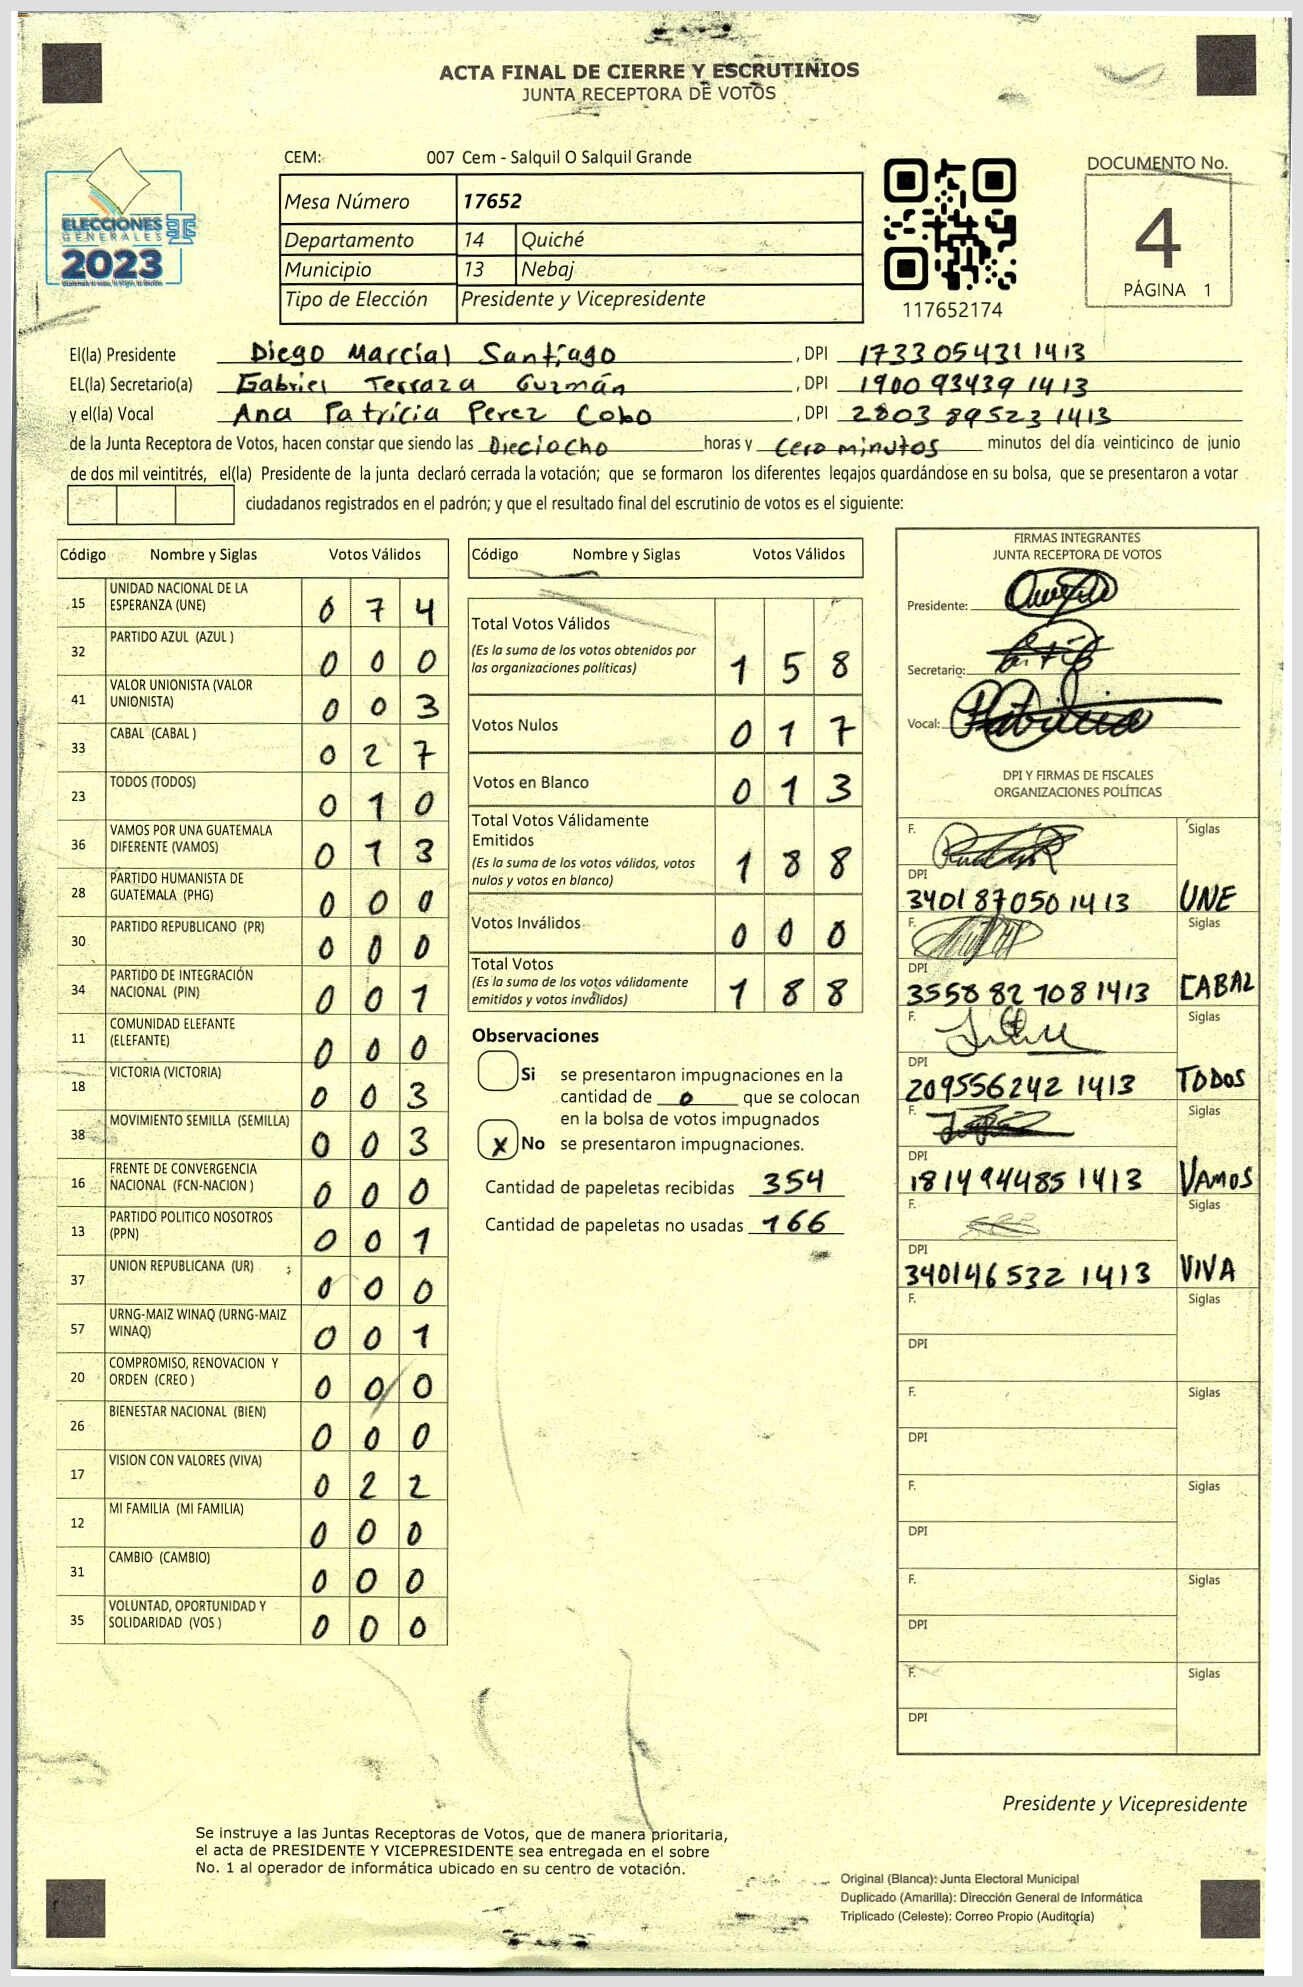 ACTA FINAL DE CIERRE Y ESCRUTINIOS
JUNTA RECEPTORA DE VOTOS
ELECCIONES
GENERALES
2023
CEM: 007 Cem - Salquil O Salquil Grande
Mesa Número 17652
Departamento 14 Quiché
Municipio 13 Nebaj
Tipo de Elección Presidente y Vicepresidente
117652174
DOCUMENTO No.
4
PÁGINA 1
El(la) Presidente Diego Marcial Santiago, DPI 1733 05431 1413
EL(la) Secretario(a) Gabriel Terraza Guzmán, DPI 1900 93439 1413
y el(la) Vocal Ana Patricia Perez Cobo, DPI 2803 89523 1413
de la Junta Receptora de Votos, hacen constar que siendo las Dieciocho horas y Cero minutos minutos del día veinticinco de junio
de dos mil veintitrés, el(la) Presidente de la junta declaró cerrada la votación; que se formaron los diferentes legajos quardándose en su bolsa, que se presentaron a votar
ciudadanos registrados en el padrón; y que el resultado final del escrutinio de votos es el siguiente:
Código Nombre y Siglas Votos Válidos
15 UNIDAD NACIONAL DE LA ESPERANZA (UNE) 0 7 4
32 PARTIDO AZUL (AZUL ) 0 0 0
41 VALOR UNIONISTA (VALOR UNIONISTA) 0 0 3
33 CABAL (CABAL ) 0 2 7
23 TODOS (TODOS) 0 1 0
36 VAMOS POR UNA GUATEMALA DIFERENTE (VAMOS) 0 1 3
28 PARTIDO HUMANISTA DE GUATEMALA (PHG) 0 0 0
30 PARTIDO REPUBLICANO (PR) 0 0 0
34 PARTIDO DE INTEGRACIÓN NACIONAL (PIN) 0 0 1
11 COMUNIDAD ELEFANTE (ELEFANTE) 0 0 0
18 VICTORIA (VICTORIA) 0 0 3
38 MOVIMIENTO SEMILLA (SEMILLA) 0 0 3
16 FRENTE DE CONVERGENCIA NACIONAL (FCN-NACION ) 0 0 0
13 PARTIDO POLITICO NOSOTROS (PPN) 0 0 1
37 UNION REPUBLICANA (UR) 0 0 0
57 URNG-MAIZ WINAQ (URNG-MAIZ WINAQ) 0 0 1
20 COMPROMISO, RENOVACION Y ORDEN (CREO ) 0 0 0
26 BIENESTAR NACIONAL (BIEN) 0 0 0
17 VISION CON VALORES (VIVA) 0 2 2
12 MI FAMILIA (MI FAMILIA) 0 0 0
31 CAMBIO (CAMBIO) 0 0 0
35 VOLUNTAD, OPORTUNIDAD Y SOLIDARIDAD (VOS ) 0 0 0
Código Nombre y Siglas Votos Válidos
Total Votos Válidos
(Es la suma de los votos obtenidos por
las organizaciones políticas) 1 5 8
Votos Nulos 0 1 7
Votos en Blanco 0 1 3
Total Votos Válidamente
Emitidos
(Es la suma de los votos válidos, votos
nulos y votos en blanco) 1 8 8
Votos Inválidos 0 0 0
Total Votos
(Es la suma de los votos válidamente
emitidos y votos inválidos) 1 8 8
Observaciones
Si se presentaron impugnaciones en la
cantidad de 0 que se colocan
en la bolsa de votos impugnados
x No se presentaron impugnaciones.
Cantidad de papeletas recibidas 354
Cantidad de papeletas no usadas 166
FIRMAS INTEGRANTES
JUNTA RECEPTORA DE VOTOS
Presidente:
Secretario:
Vocal:
DPI Y FIRMAS DE FISCALES
ORGANIZACIONES POLÍTICAS
F. Siglas
DPI
3401 87050 1413 UNE
F. Siglas
DPI
3558 82 708 1413 CABAL
F. Siglas
DPI
209556242 1413 TODOS
F. Siglas
DPI
1814 94485 1413 VAMOS
F. Siglas
DPI
340146532 1413 VIVA
F. Siglas
DPI
F. Siglas
DPI
F. Siglas
DPI
F. Siglas
DPI
F. Siglas
DPI
Presidente y Vicepresidente
Se instruye a las Juntas Receptoras de Votos, que de manera prioritaria,
el acta de PRESIDENTE Y VICEPRESIDENTE sea entregada en el sobre
No. 1 al operador de informática ubicado en su centro de votación.
Original (Blanca): Junta Electoral Municipal
Duplicado (Amarilla): Dirección General de Informática
Triplicado (Celeste): Correo Propio (Auditoría)